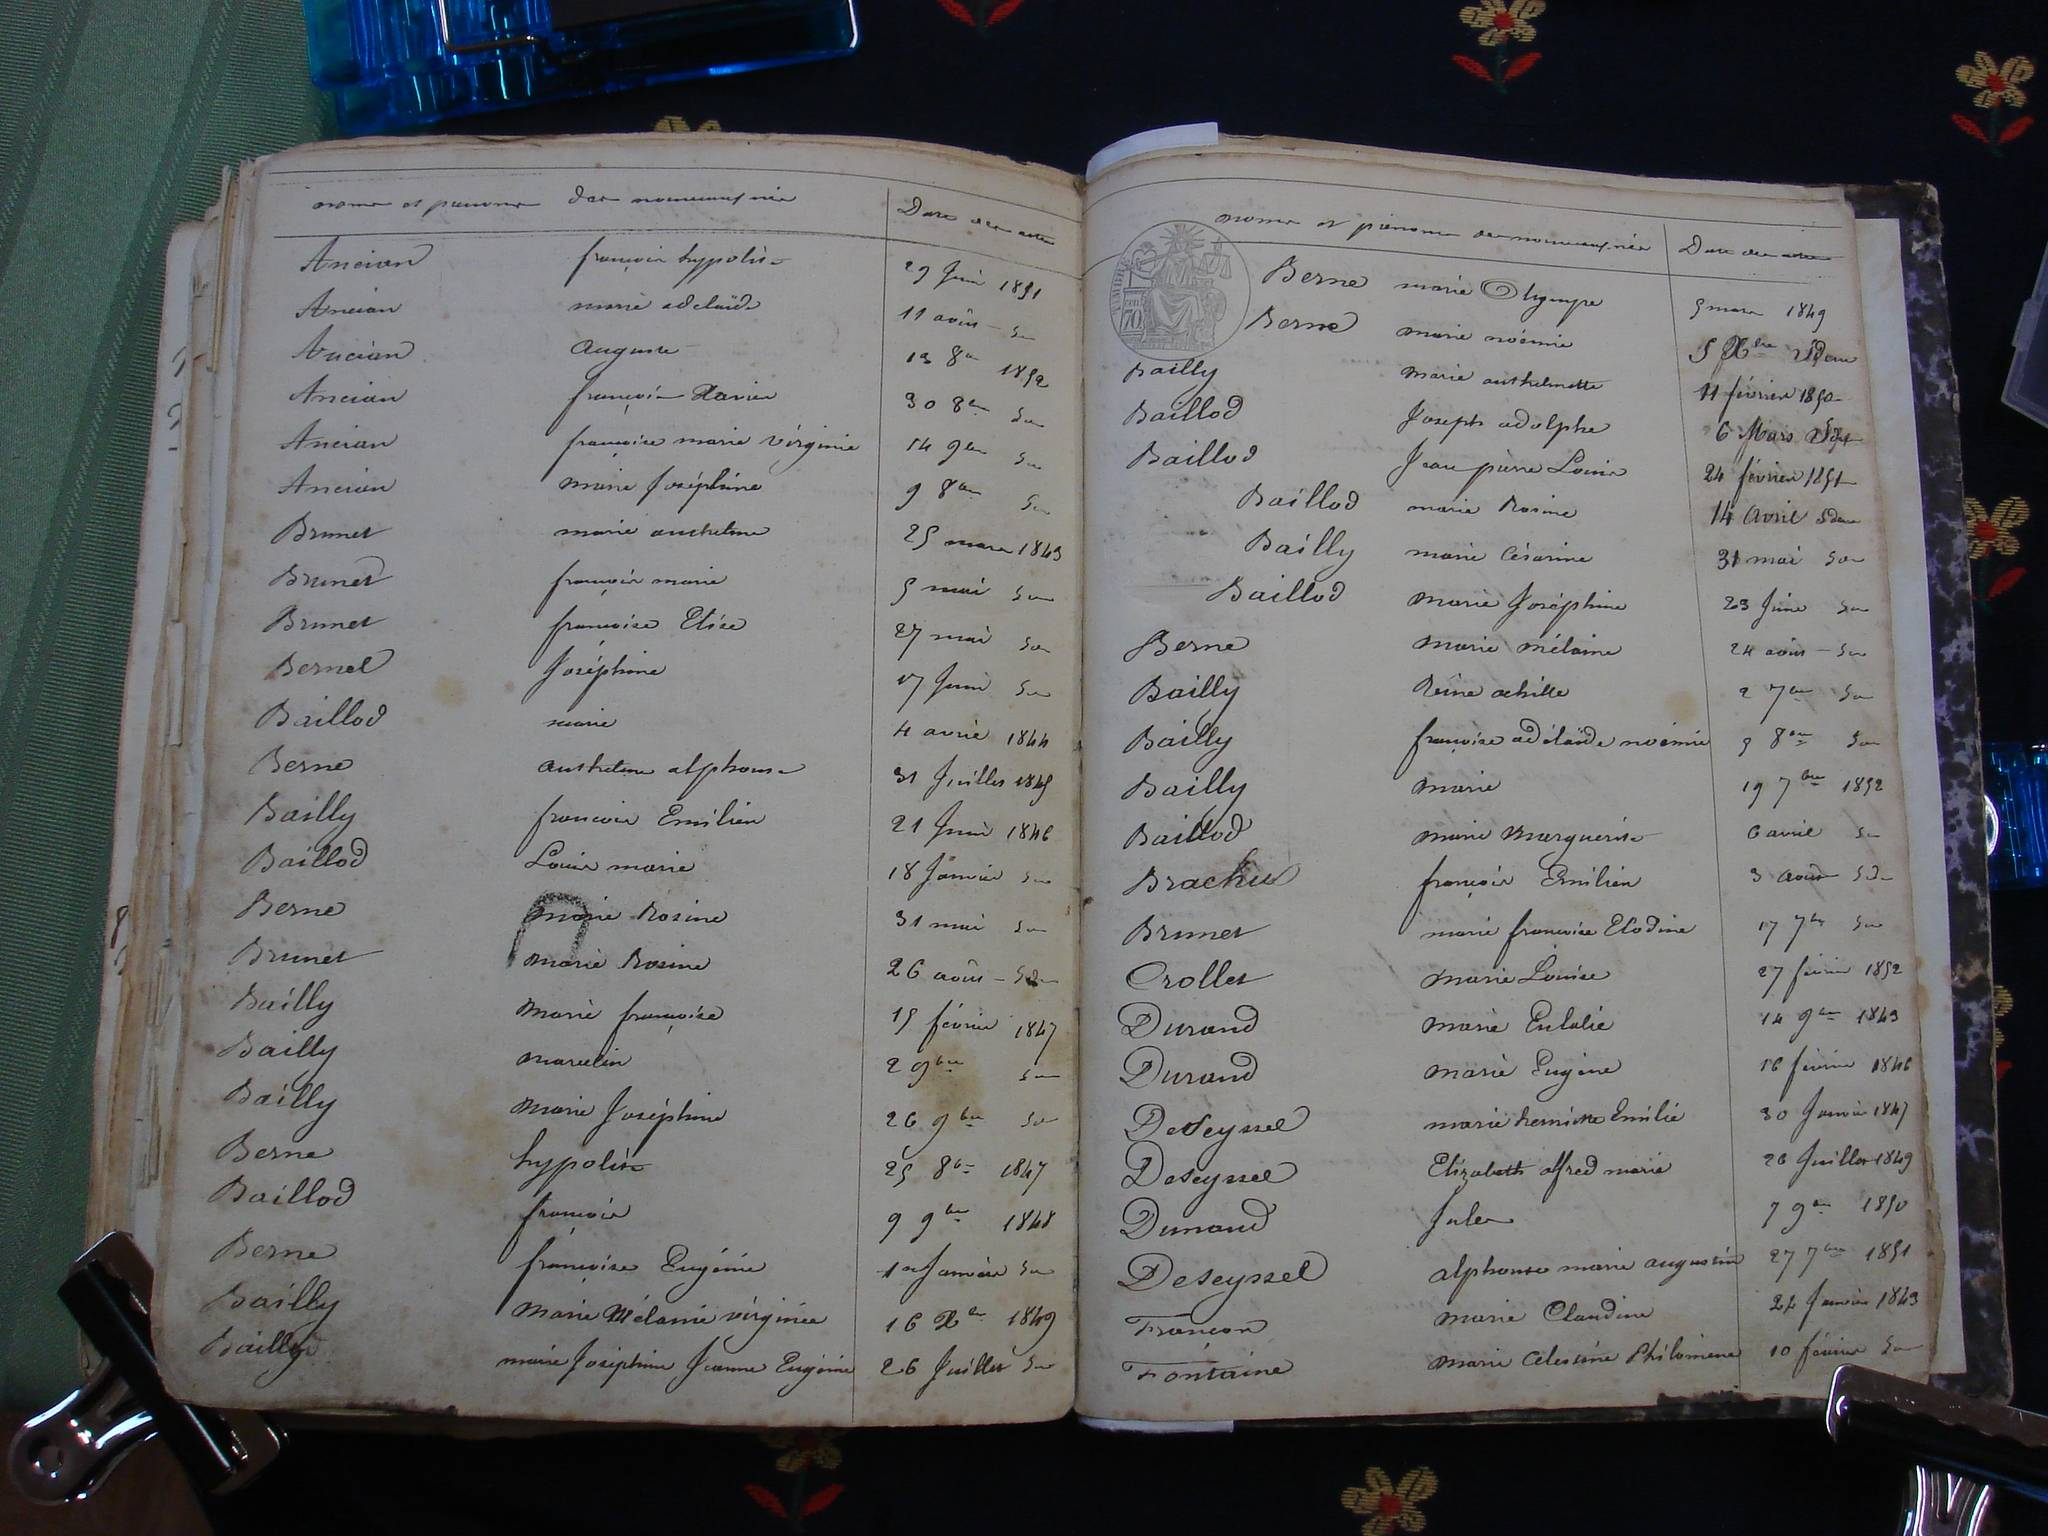 noms et prénoms des nouveaux nés Date des actes
Ancian françois hypolite 29 Juin 1851
Ancian marie adelaïde 11 août
Ancian Auguste 13 8bre 1852
Ancian françois Xavier 30 8bre
Ancian françoise marie virginie 14 9bre
Ancian marie Joséphine 9 8bre
Brunet marie anthelme 25 mars 1843
Brunet françois marie 5 mai
Brunet françoise Elise 27 mai
Bernel Joséphine 17 Juin
Baillod marie 4 avril 1844
Berne anthelme alphonse 31 Juillet 1845
Bailly françois Emilien 21 Juin 1846
Baillod Louis marie 18 Janvier
Berne marie Rosine 31 mai
Brunet marie Rosine 26 août
Bailly Marie françoise 15 février 1847
Bailly marcelin 2 9bre
Bailly Marie Joséphine 26 9bre
Berne hypolite 25 8bre 1847
Baillod françois 9 9bre 1848
Berne françoise Eugénie 1er Janvier
Bailly Marie Mélanie virginie 16 Xbre 1849
Bailly marie Joséphine Jeanne Eugénie 26 Juillet
noms et prénoms des nouveaux nés Date des actes
TIMBRE
70
Berne marie Olympe 5 mars 1849
Berne marie noémie 5 Xbre
Bailly marie anthelmette 11 février 1850
Baillod Joseph adolphe 6 Mars
Baillod Jean pierre Louis 24 février 1851
Baillod marie Rosine 14 Avril
Bailly marie Césarine 31 mai
Baillod Marie Joséphine 23 Juin
Berne Marie mélanie 24 août
Bailly Reine achille 2 7bre
Bailly françoise adélaïde noémie 9 8bre
Bailly Marie 19 7bre 1852
Baillod Marie Marguerite 6 avril
Brachet françois Emilien 3 août
Brunet marie françoise Elodine 17 7bre
Crollet marie Louise 27 février 1852
Durand marie Eulalie 14 9bre 1843
Durand marie Eugène 16 février 1846
DeSeyssel marie Emilie 30 Janvier 1847
DeSeyssel Elizabeth alfred marie 26 Juillet 1849
Dunand Jules 7 9bre 1850
DeSeyssel alphonse marie augustin 27 7bre 1851
Françon marie Claudine 24 Janvier 1843
Fontaine marie Célestine Philomène 10 février